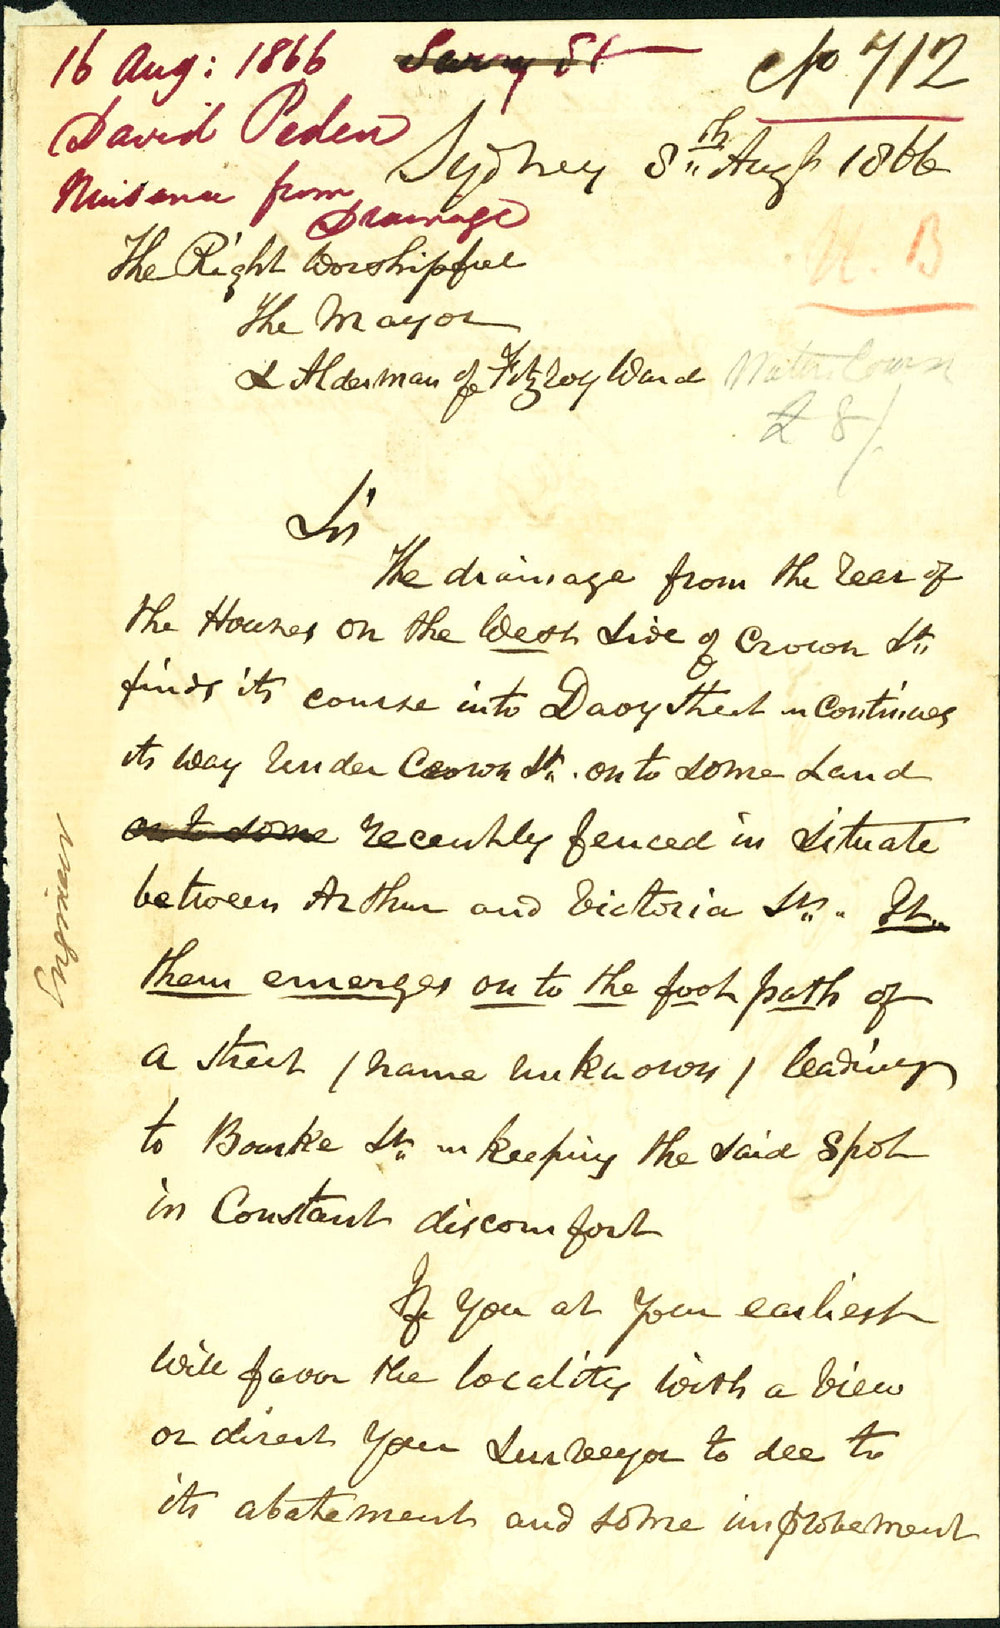 16 Aug: 1866
No 712
David Peden
Sydney 8th Augt 1866
Nuisance from
Drainage
The Right Worshipful
The Mayor
N. B
& Alderman of Fitzroy Ward
£ 8/
Sir
The drainage from the rear of
the Houses on the West Side of Crown St.
finds its course into Davy Street continues
its way under Crown St. on to some Land
on to some recently fenced in Situate
between Arthur and Victoria Sts. It
then emerges on to the foot path of
a Street / name unknown / leading
to Bourke St. keeping the said Spot
in Constant discomfort
If you at your earliest
will favor the locality with a View
or direct your Surveyor to see to
its abatement and some improvement